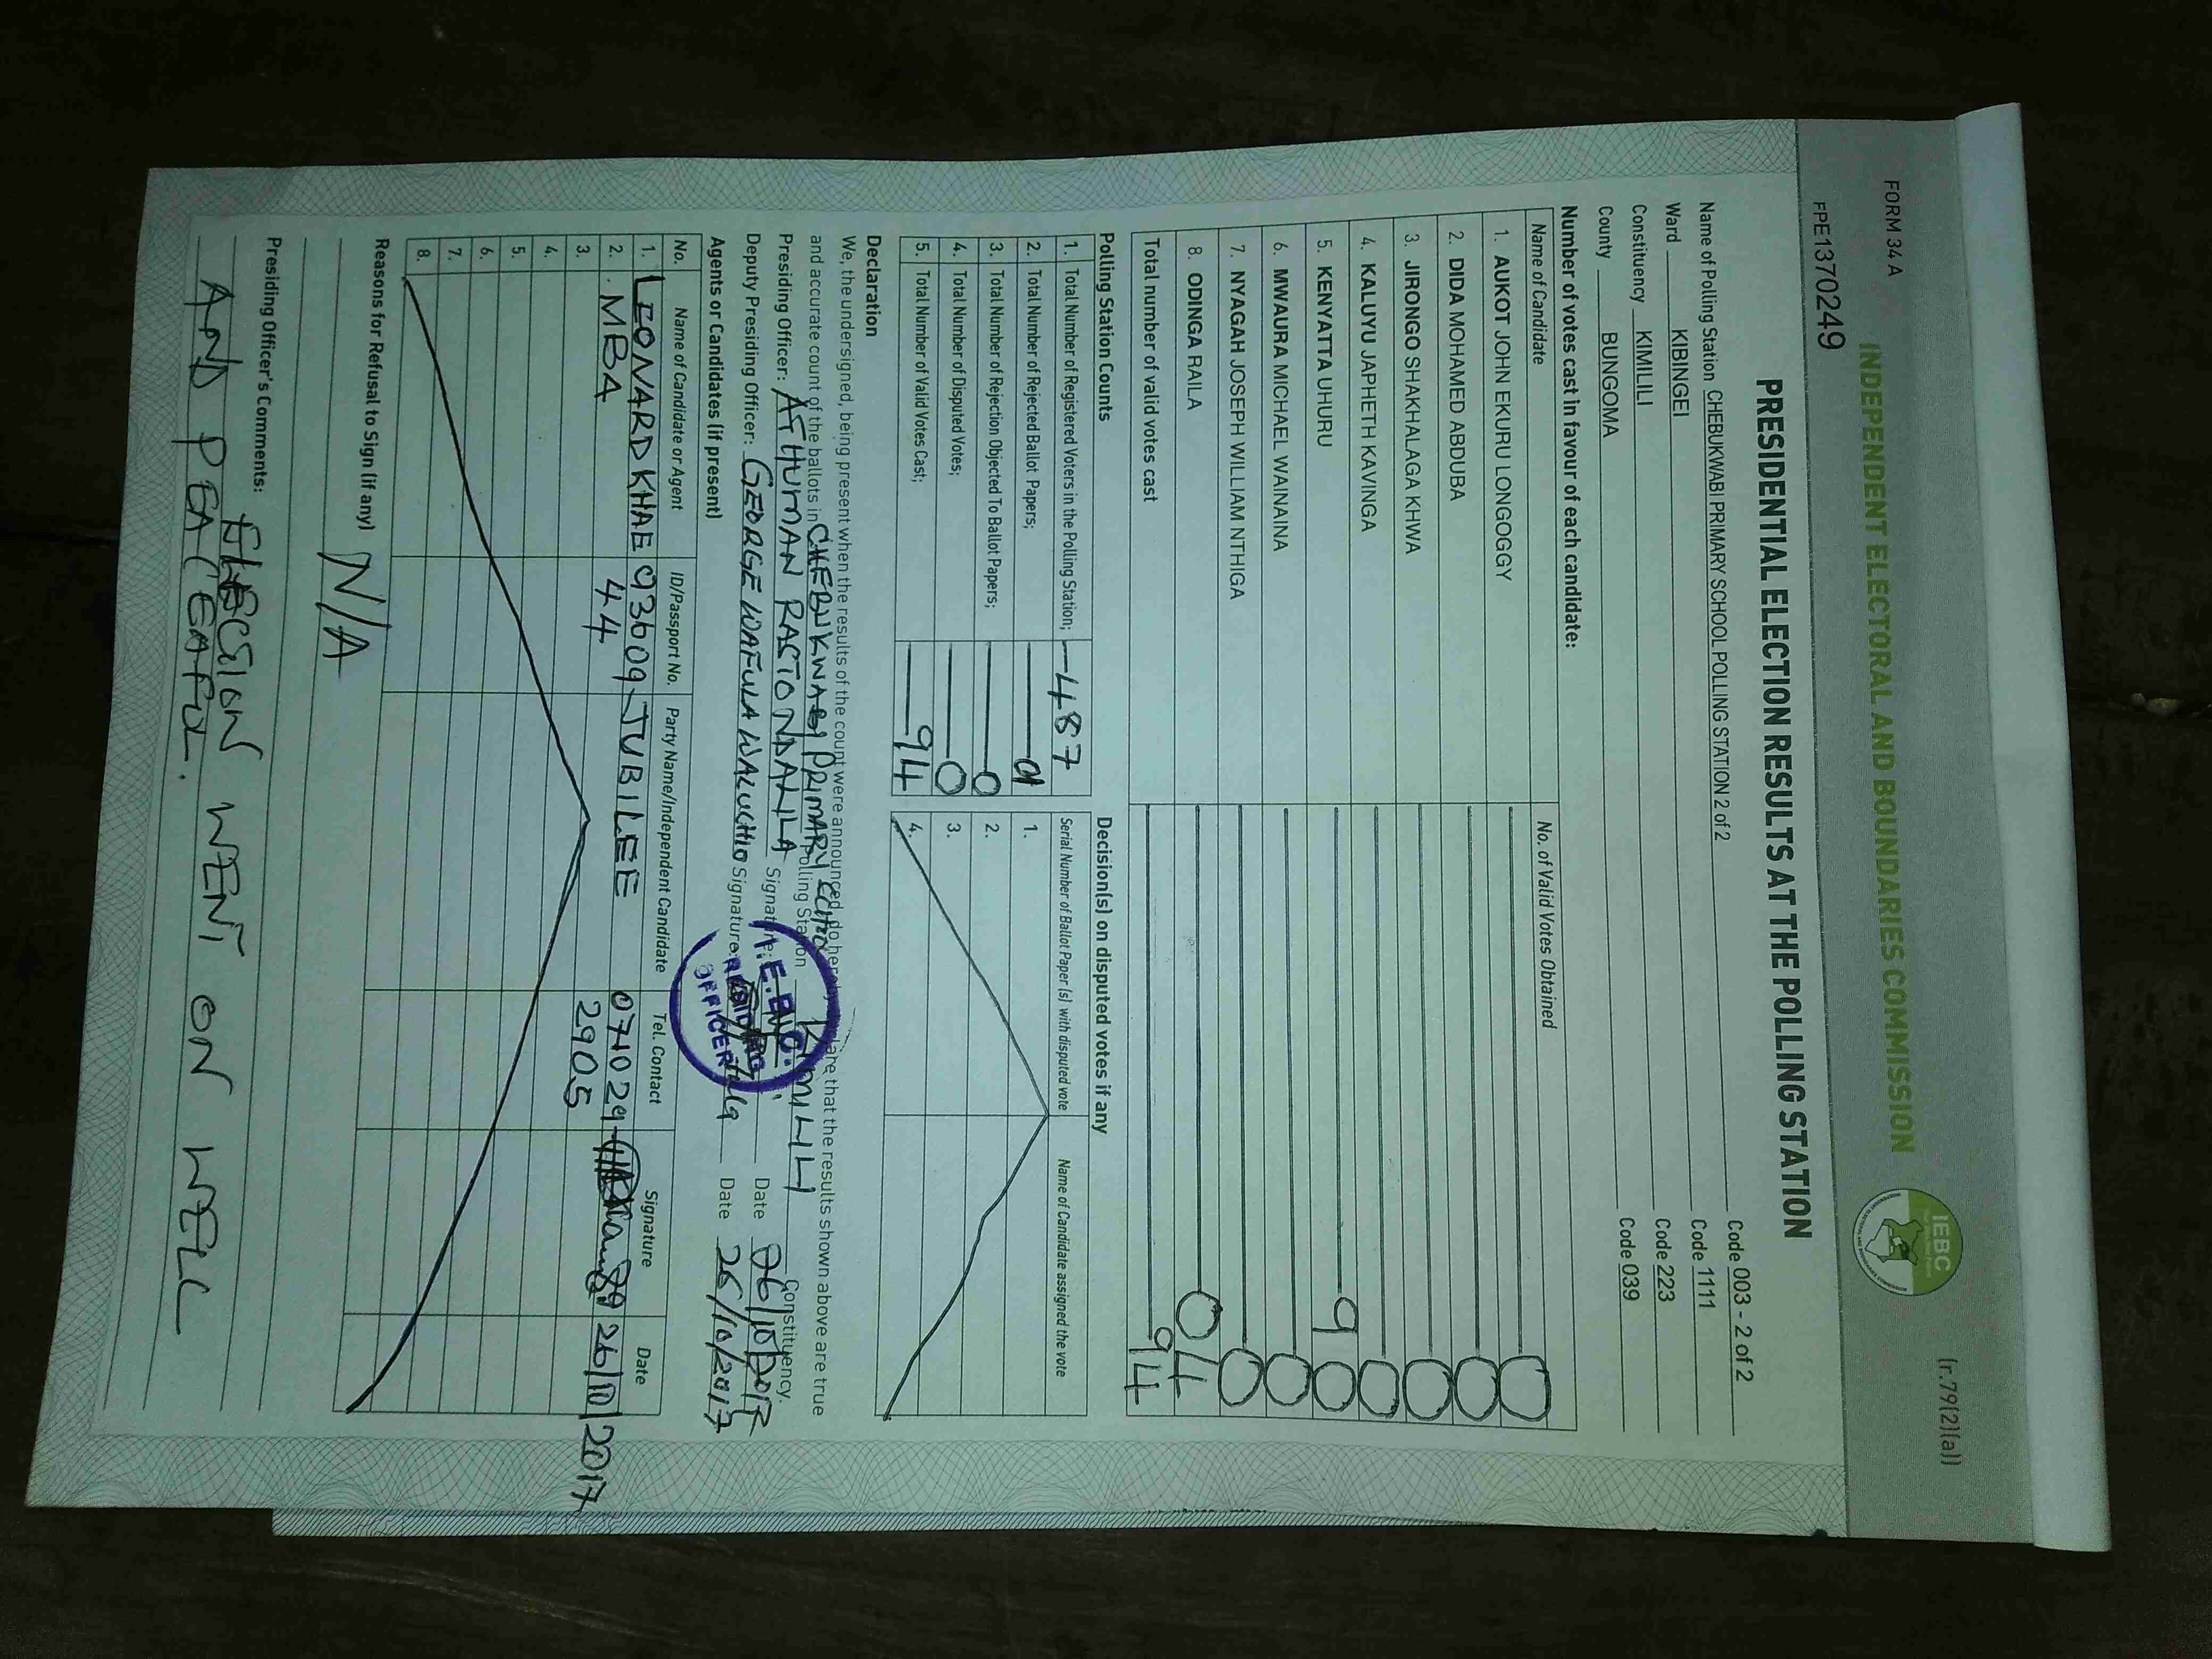 FORM 34 A
(r.79(2)(a))
INDEPENDENT ELECTORAL AND BOUNDARIES COMMISSION
IEBC
FPE1370249
PRESIDENTIAL ELECTION RESULTS AT THE POLLING STATION
Name of Polling Station CHEBUKWABI PRIMARY SCHOOL POLLING STATION 2 of 2 Code 003 - 2 of 2
Ward KIBINGEI Code 1111
Constituency KIMILILI Code 223
County BUNGOMA Code 039
Number of votes cast in favour of each candidate:
Name of Candidate No. of Valid Votes Obtained
1. AUKOT JOHN EKURU LONGOGGY 0
2. DIDA MOHAMED ABDUBA 0
3. JIRONGO SHAKHALAGA KHWA 0
4. KALUYU JAPHETH KAVINGA 0
5. KENYATTA UHURU 90
6. MWAURA MICHAEL WAINAINA 0
7. NYAGAH JOSEPH WILLIAM NTHIGA 0
8. ODINGA RAILA 04
Total number of valid votes cast 94
Polling Station Counts
1. Total Number of Registered Voters in the Polling Station; 487
2. Total Number of Rejected Ballot Papers;
3. Total Number of Rejection Objected To Ballot Papers; 0
4. Total Number of Disputed Votes; 0
5. Total Number of Valid Votes Cast; 94
Decision(s) on disputed votes if any
Serial Number of Ballot Paper (s) with disputed vote Name of Candidate assigned the vote
1.
2.
3.
4.
Declaration
We, the undersigned, being present when the results of the count were announced, do hereby declare that the results shown above are true
and accurate count of the ballots in PRIMARY Polling Station KIMILILI Constituency.
Presiding Officer: ATHUMAN RASTO NDALILA Signature: Date 26/10/2017
Deputy Presiding Officer: GEORGE WAFULA WALUCHIO Signature: Date 26/10/2017
I.E.B.C.
PRESIDING
OFFICER
Agents or Candidates (if present)
No. Name of Candidate or Agent ID/Passport No. Party Name/Independent Candidate Tel. Contact Signature Date
1. LEONARD KHAE 093609 JUBILEE 071029 26/10/2017
2. MBA 44 2905
3.
4.
5.
6.
7.
8.
Reasons for Refusal to Sign (if any) N/A
Presiding Officer's Comments: WENT ON WELL
AND PEACEAFUL.